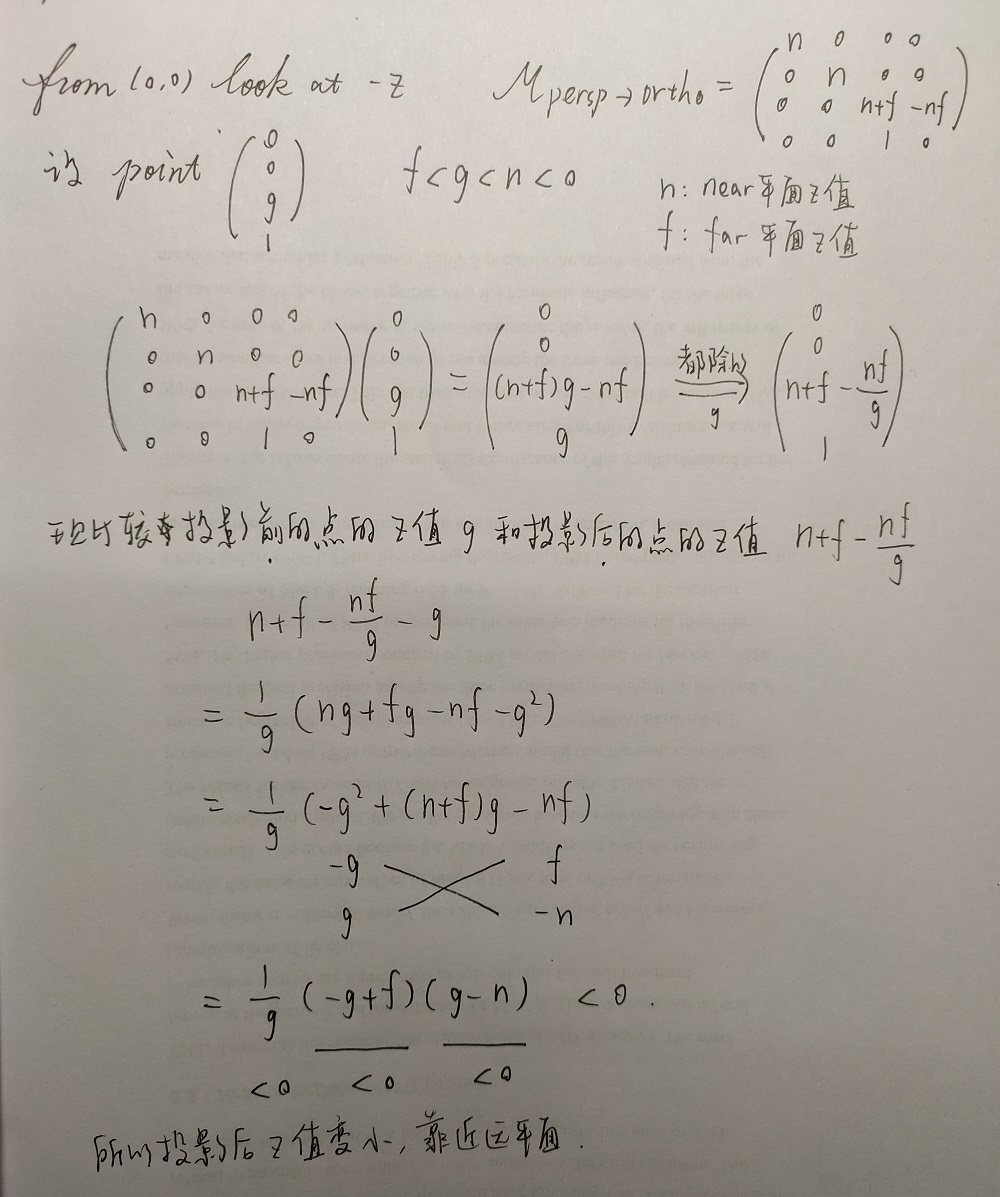 from (0,0) look at -z
M persp→ortho = ( n 0 0 0
0 n 0 0
0 0 n+f -nf
0 0 1 0 )
设 point ( 0
0
g
1 )
f<g<n<0
n: near平面z值
f: far 平面z值
( n 0 0 0
0 n 0 0
0 0 n+f -nf
0 0 1 0 ) ( 0
0
g
1 ) = ( 0
0
(n+f)g-nf
g ) 都除以 g ⇒ ( 0
0
n+f - nf/g
1 )
现比较投影前的点的z值 g 和投影后的点的z值 n+f - nf/g
n+f - nf/g - g
= 1/g (ng+fg-nf-g²)
= 1/g (-g²+(n+f)g-nf)
-g f
g -n
= 1/g (-g+f)(g-n) <0.
<0 <0 <0
所以投影后z值变小,靠近远平面.